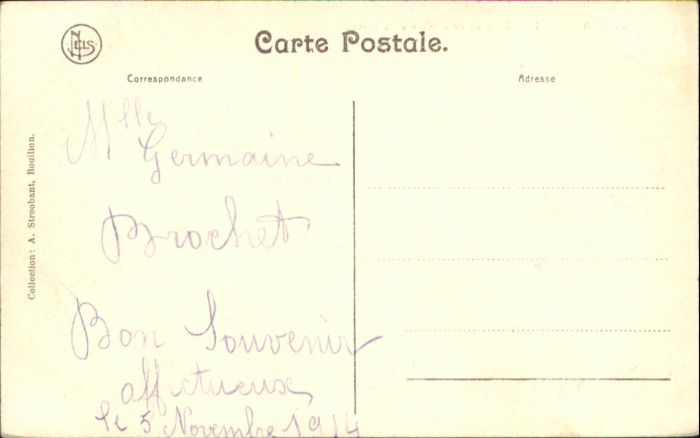 NELS
Carte Postale.
Correspondance
Adresse
Collection: A. Stroobant, Bouillon.
Mlle
Germaine
Brochet
Bon Souvenir
affectueux
le 5 Novembre 1914